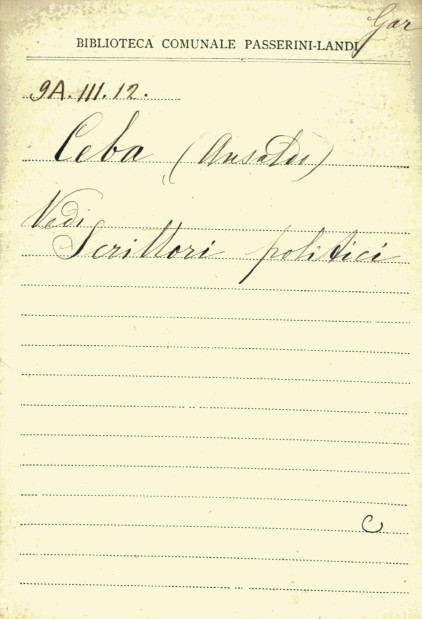 Gar
BIBLIOTECA COMUNALE PASSERINI-LANDI
9A.III.12.
Ceba (Ansaldo)
Vedi
Scrittori politici
C